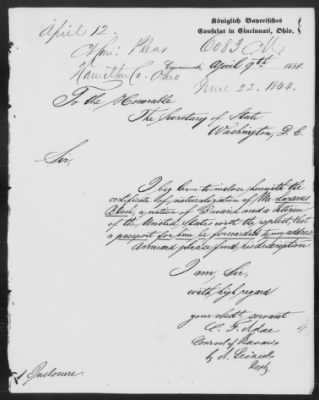 Königlich Bayerisches
Consulat in Cincinnati, Ohio.
April 12.
Pleas
Hamilton Co. Ohio
6083
Cincinnati, April 9th 186
June 22. 1844.
To the Honorable
The Secretary of State
Washington, D. C.
Sir,
I beg leave to inclose herewith the
certificate of naturalization of Mr. Lazarus
a native of Bavaria and a citizen
of the United States with the request, that
a passport for him be forwarded to my address.
Annexed please find his description.
I am, Sir,
with high regard
your obdt. servant
C. F. Adae
Consul of Bavaria
by
Depty.
1 Enclosure.